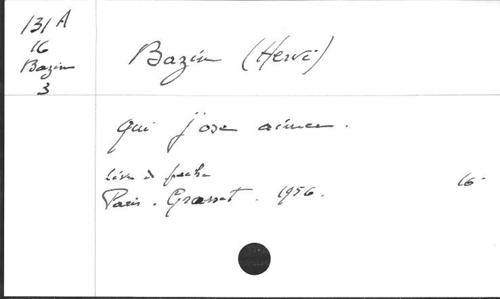 131 A
16
Bazin
3
Bazin (Hervé)
Qui j'ose aimer.
Livre de poche
Paris. Grasset. 1956.
16